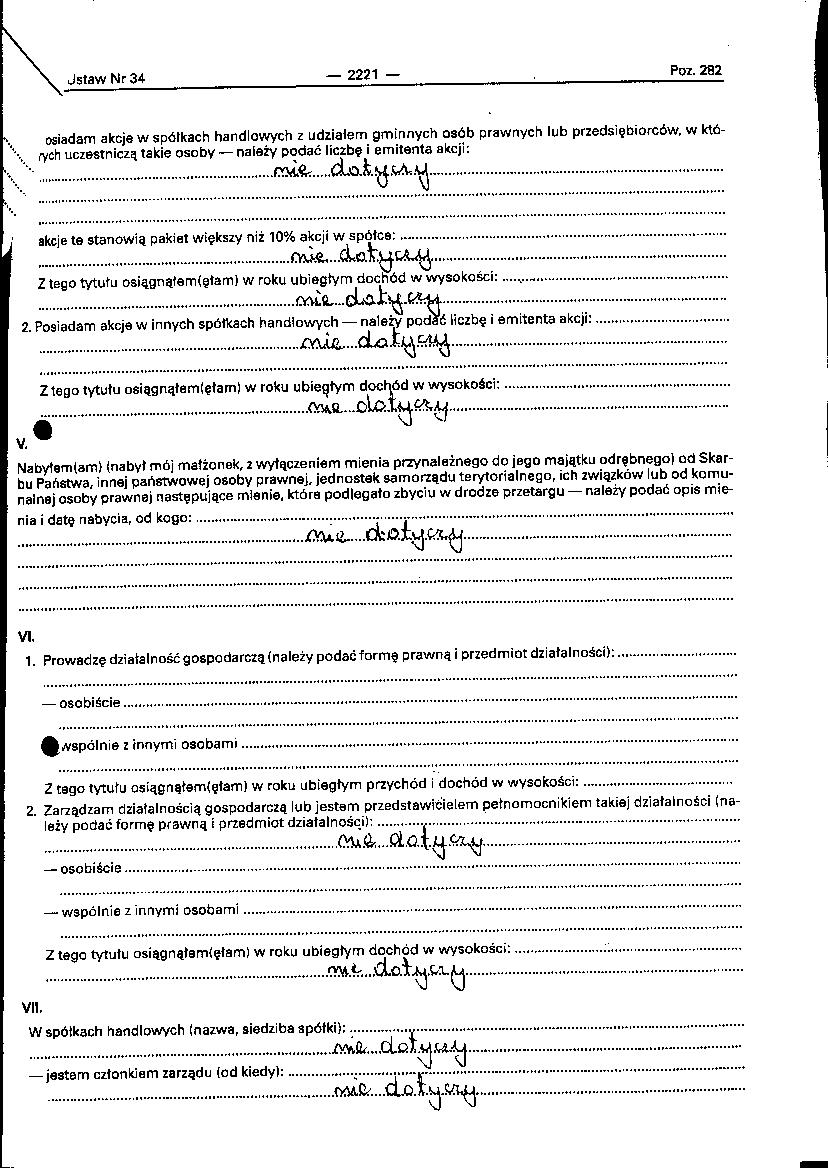 Ustaw Nr 34 — 2221 — Poz. 282
osiadam akcje w spółkach handlowych z udziałem gminnych osób prawnych lub przedsiębiorców, w któ-
rych uczestniczą takie osoby — należy podać liczbę i emitenta akcji:
nie dotyczy
akcje te stanowią pakiet większy niż 10% akcji w spółce:
nie dotyczy
Z tego tytułu osiągnąłem(ęłam) w roku ubiegłym dochód w wysokości:
nie dotyczy
2. Posiadam akcje w innych spółkach handlowych — należy podać liczbę i emitenta akcji:
nie dotyczy
Z tego tytułu osiągnąłem(ęłam) w roku ubiegłym dochód w wysokości:
nie dotyczy
V.
Nabyłem(am) (nabył mój małżonek, z wyłączeniem mienia przynależnego do jego majątku odrębnego) od Skar-
bu Państwa, innej państwowej osoby prawnej, jednostek samorządu terytorialnego, ich związków lub od komu-
nalnej osoby prawnej następujące mienie, które podlegało zbyciu w drodze przetargu — należy podać opis mie-
nia i datę nabycia, od kogo:
nie dotyczy
VI.
1. Prowadzę działalność gospodarczą (należy podać formę prawną i przedmiot działalności):
— osobiście
wspólnie z innymi osobami
Z tego tytułu osiągnąłem(ęłam) w roku ubiegłym przychód i dochód w wysokości:
2. Zarządzam działalnością gospodarczą lub jestem przedstawicielem pełnomocnikiem takiej działalności (na-
leży podać formę prawną i przedmiot działalności):
nie dotyczy
— osobiście
— wspólnie z innymi osobami
Z tego tytułu osiągnąłem(ęłam) w roku ubiegłym dochód w wysokości:
nie dotyczy
VII.
W spółkach handlowych (nazwa, siedziba spółki):
nie dotyczy
— jestem członkiem zarządu (od kiedy):
nie dotyczy